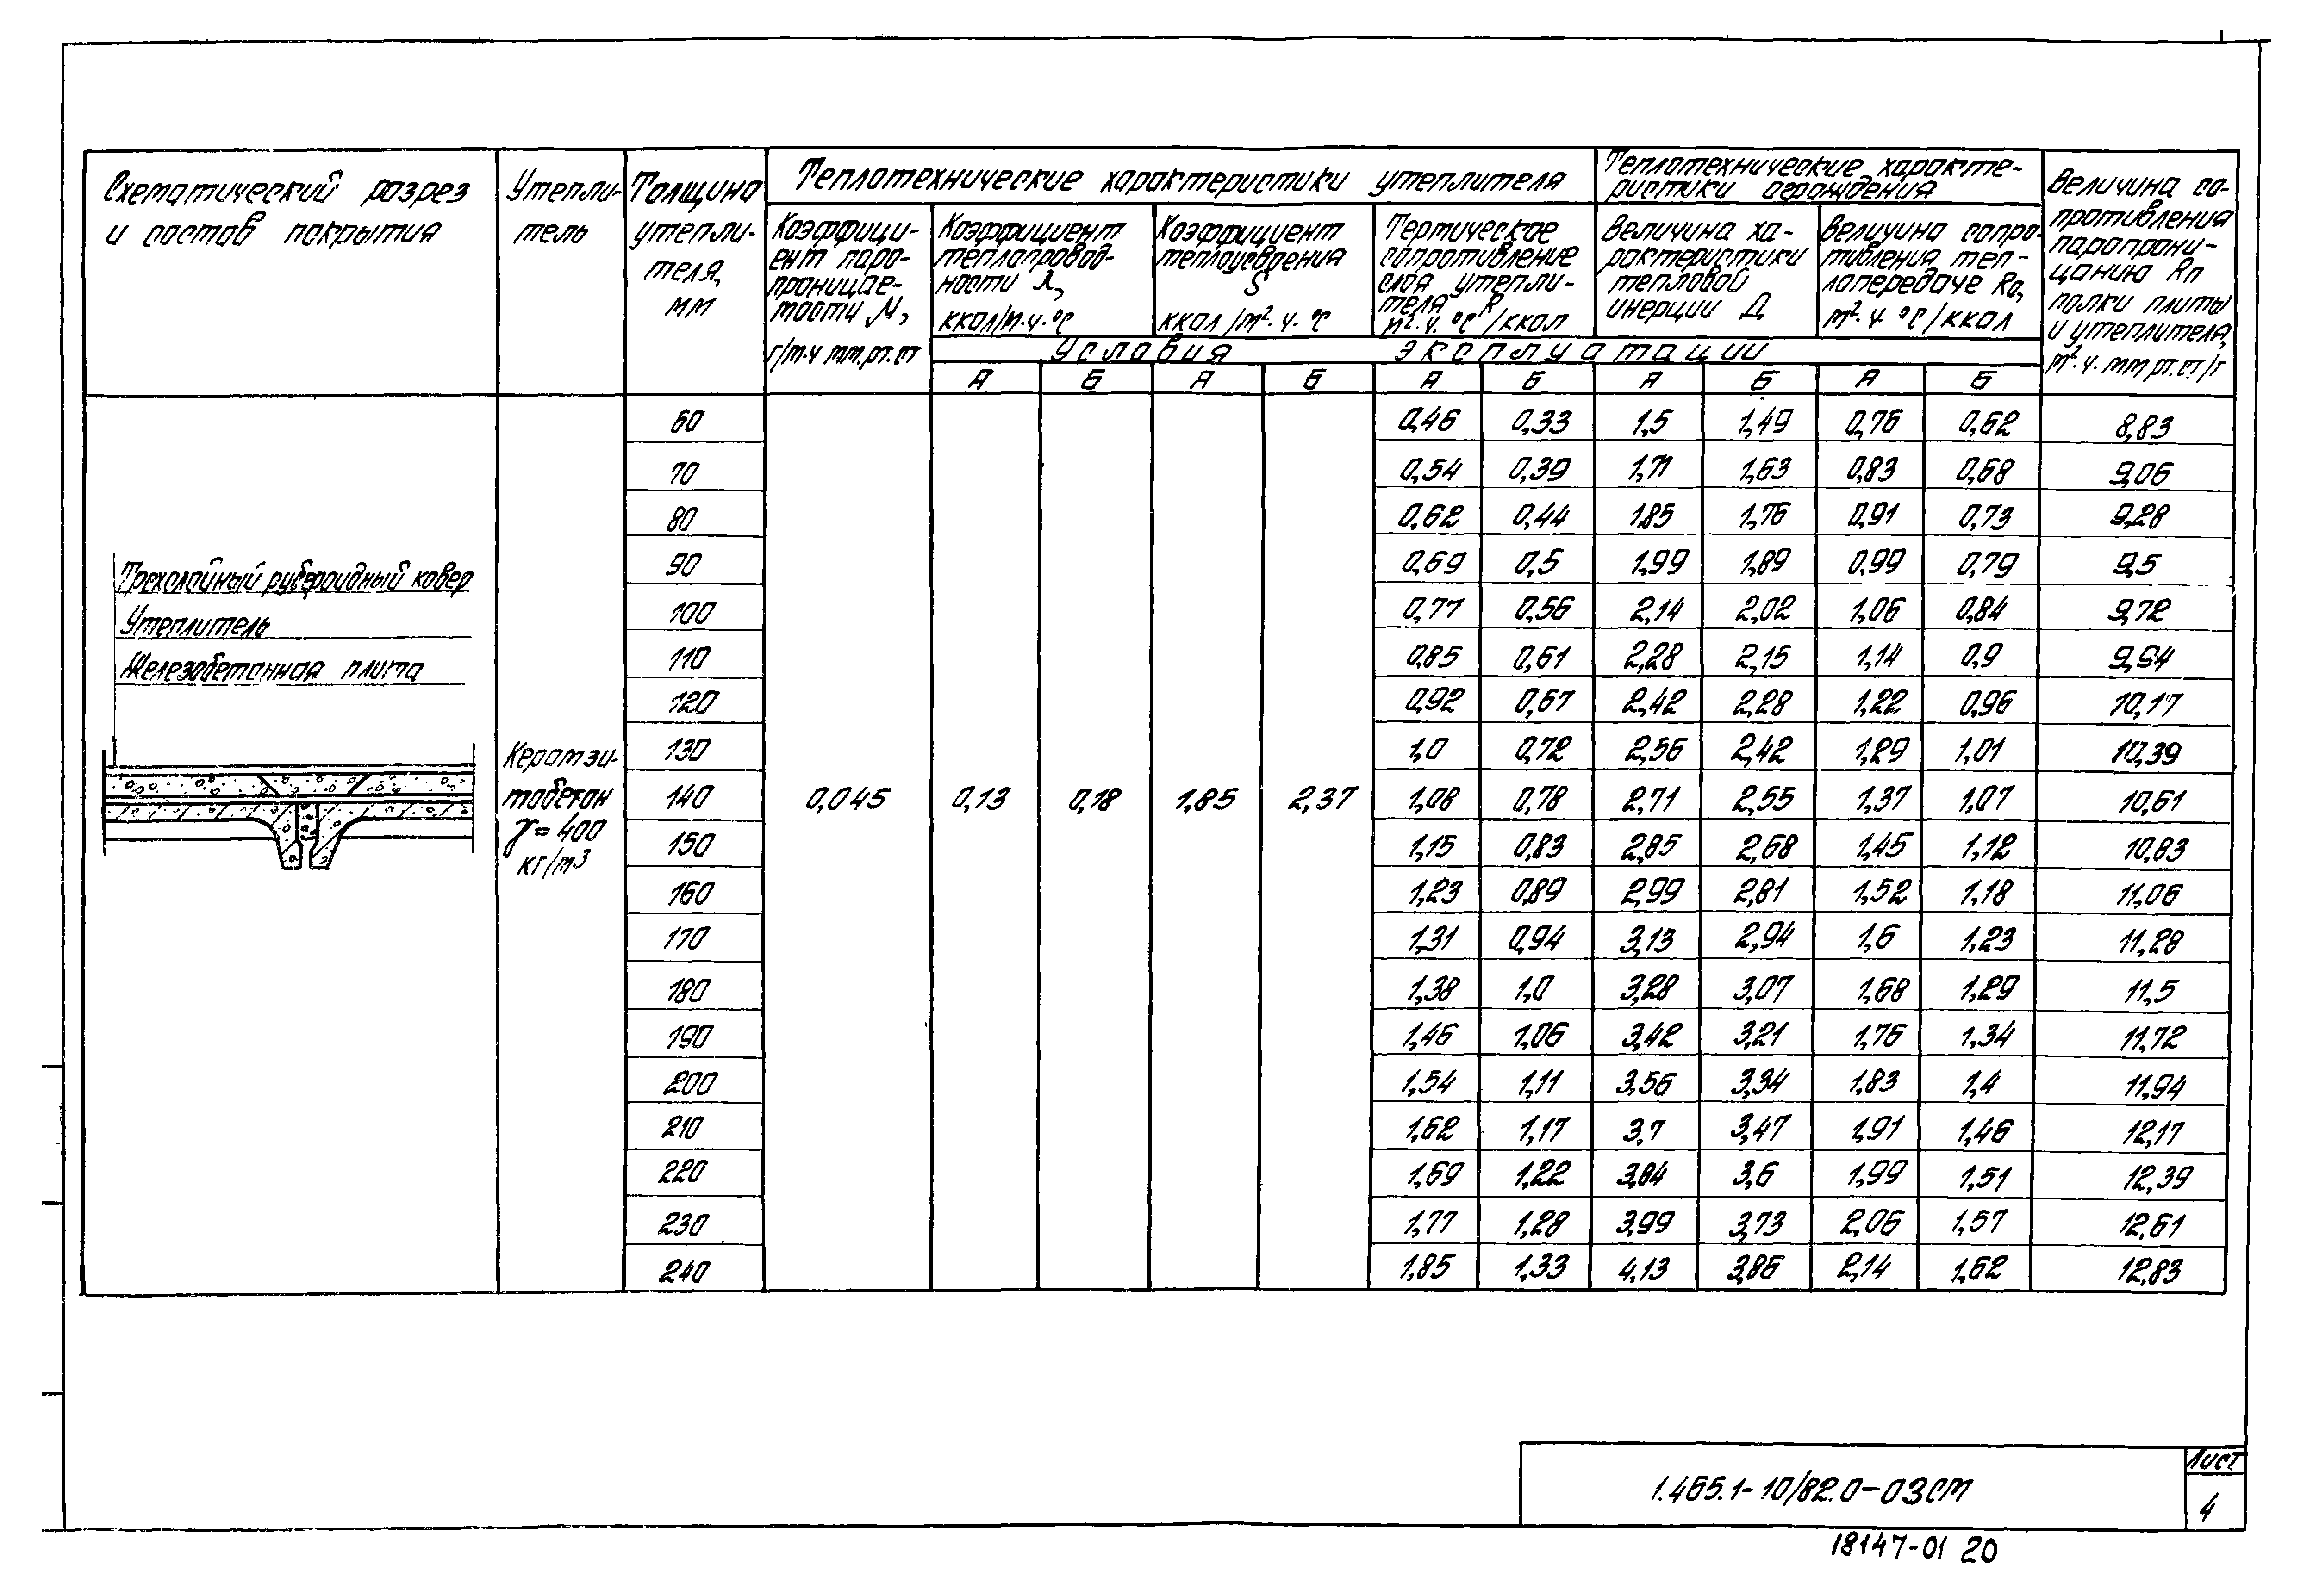 Схематический разрез
и состав покрытия
Утепли-
тель
Толщина
утепли-
теля,
мм
Теплотехнические характеристики утеплителя
Теплотехнические характе-
ристики ограждения
Величина со-
противления
паропрони-
цанию Rп
полки плиты
и утеплителя,
м².ч.мм рт.ст/г
Коэффици-
ент паро-
проницае-
мости М,
г/м.ч мм.рт.ст
Коэффициент
теплопровод-
ности λ,
ккал/м.ч.°С
Коэффициент
теплоусвоения
S
ккал/м².ч.°С
Термическое
сопротивление
слоя утепли-
теля R
м².ч.°С/ккал
Величина ха-
рактеристики
тепловой
инерции Д
Величина сопро-
тивления теп-
лопередаче Rо,
м².ч °С/ккал
Условия эксплуатации
А Б А Б А Б А Б А Б
60 0,46 0,33 1,5 1,49 0,76 0,62 8,83
70 0,54 0,39 1,71 1,63 0,83 0,68 9,06
80 0,62 0,44 1,85 1,76 0,91 0,73 9,28
90 0,69 0,5 1,99 1,89 0,99 0,79 9,5
100 0,77 0,56 2,14 2,02 1,06 0,84 9,72
110 0,85 0,61 2,28 2,15 1,14 0,9 9,94
120 0,92 0,67 2,42 2,28 1,22 0,96 10,17
130 1,0 0,72 2,56 2,42 1,29 1,01 10,39
140 0,045 0,13 0,18 1,85 2,37 1,08 0,78 2,71 2,55 1,37 1,07 10,61
150 1,15 0,83 2,85 2,68 1,45 1,12 10,83
160 1,23 0,89 2,99 2,81 1,52 1,18 11,06
170 1,31 0,94 3,13 2,94 1,6 1,23 11,28
180 1,38 1,0 3,28 3,07 1,68 1,29 11,5
190 1,46 1,06 3,42 3,21 1,76 1,34 11,72
200 1,54 1,11 3,56 3,34 1,83 1,4 11,94
210 1,62 1,17 3,7 3,47 1,91 1,46 12,17
220 1,69 1,22 3,84 3,6 1,99 1,51 12,39
230 1,77 1,28 3,99 3,73 2,06 1,57 12,61
240 1,85 1,33 4,13 3,86 2,14 1,62 12,83
Трехслойный рубероидный ковер
Утеплитель
Железобетонная плита
Керамзи-
тобетон
γ=400
кг/м³
1.465.1-10/82.0-03СМ
Лист
4
18147-01 20